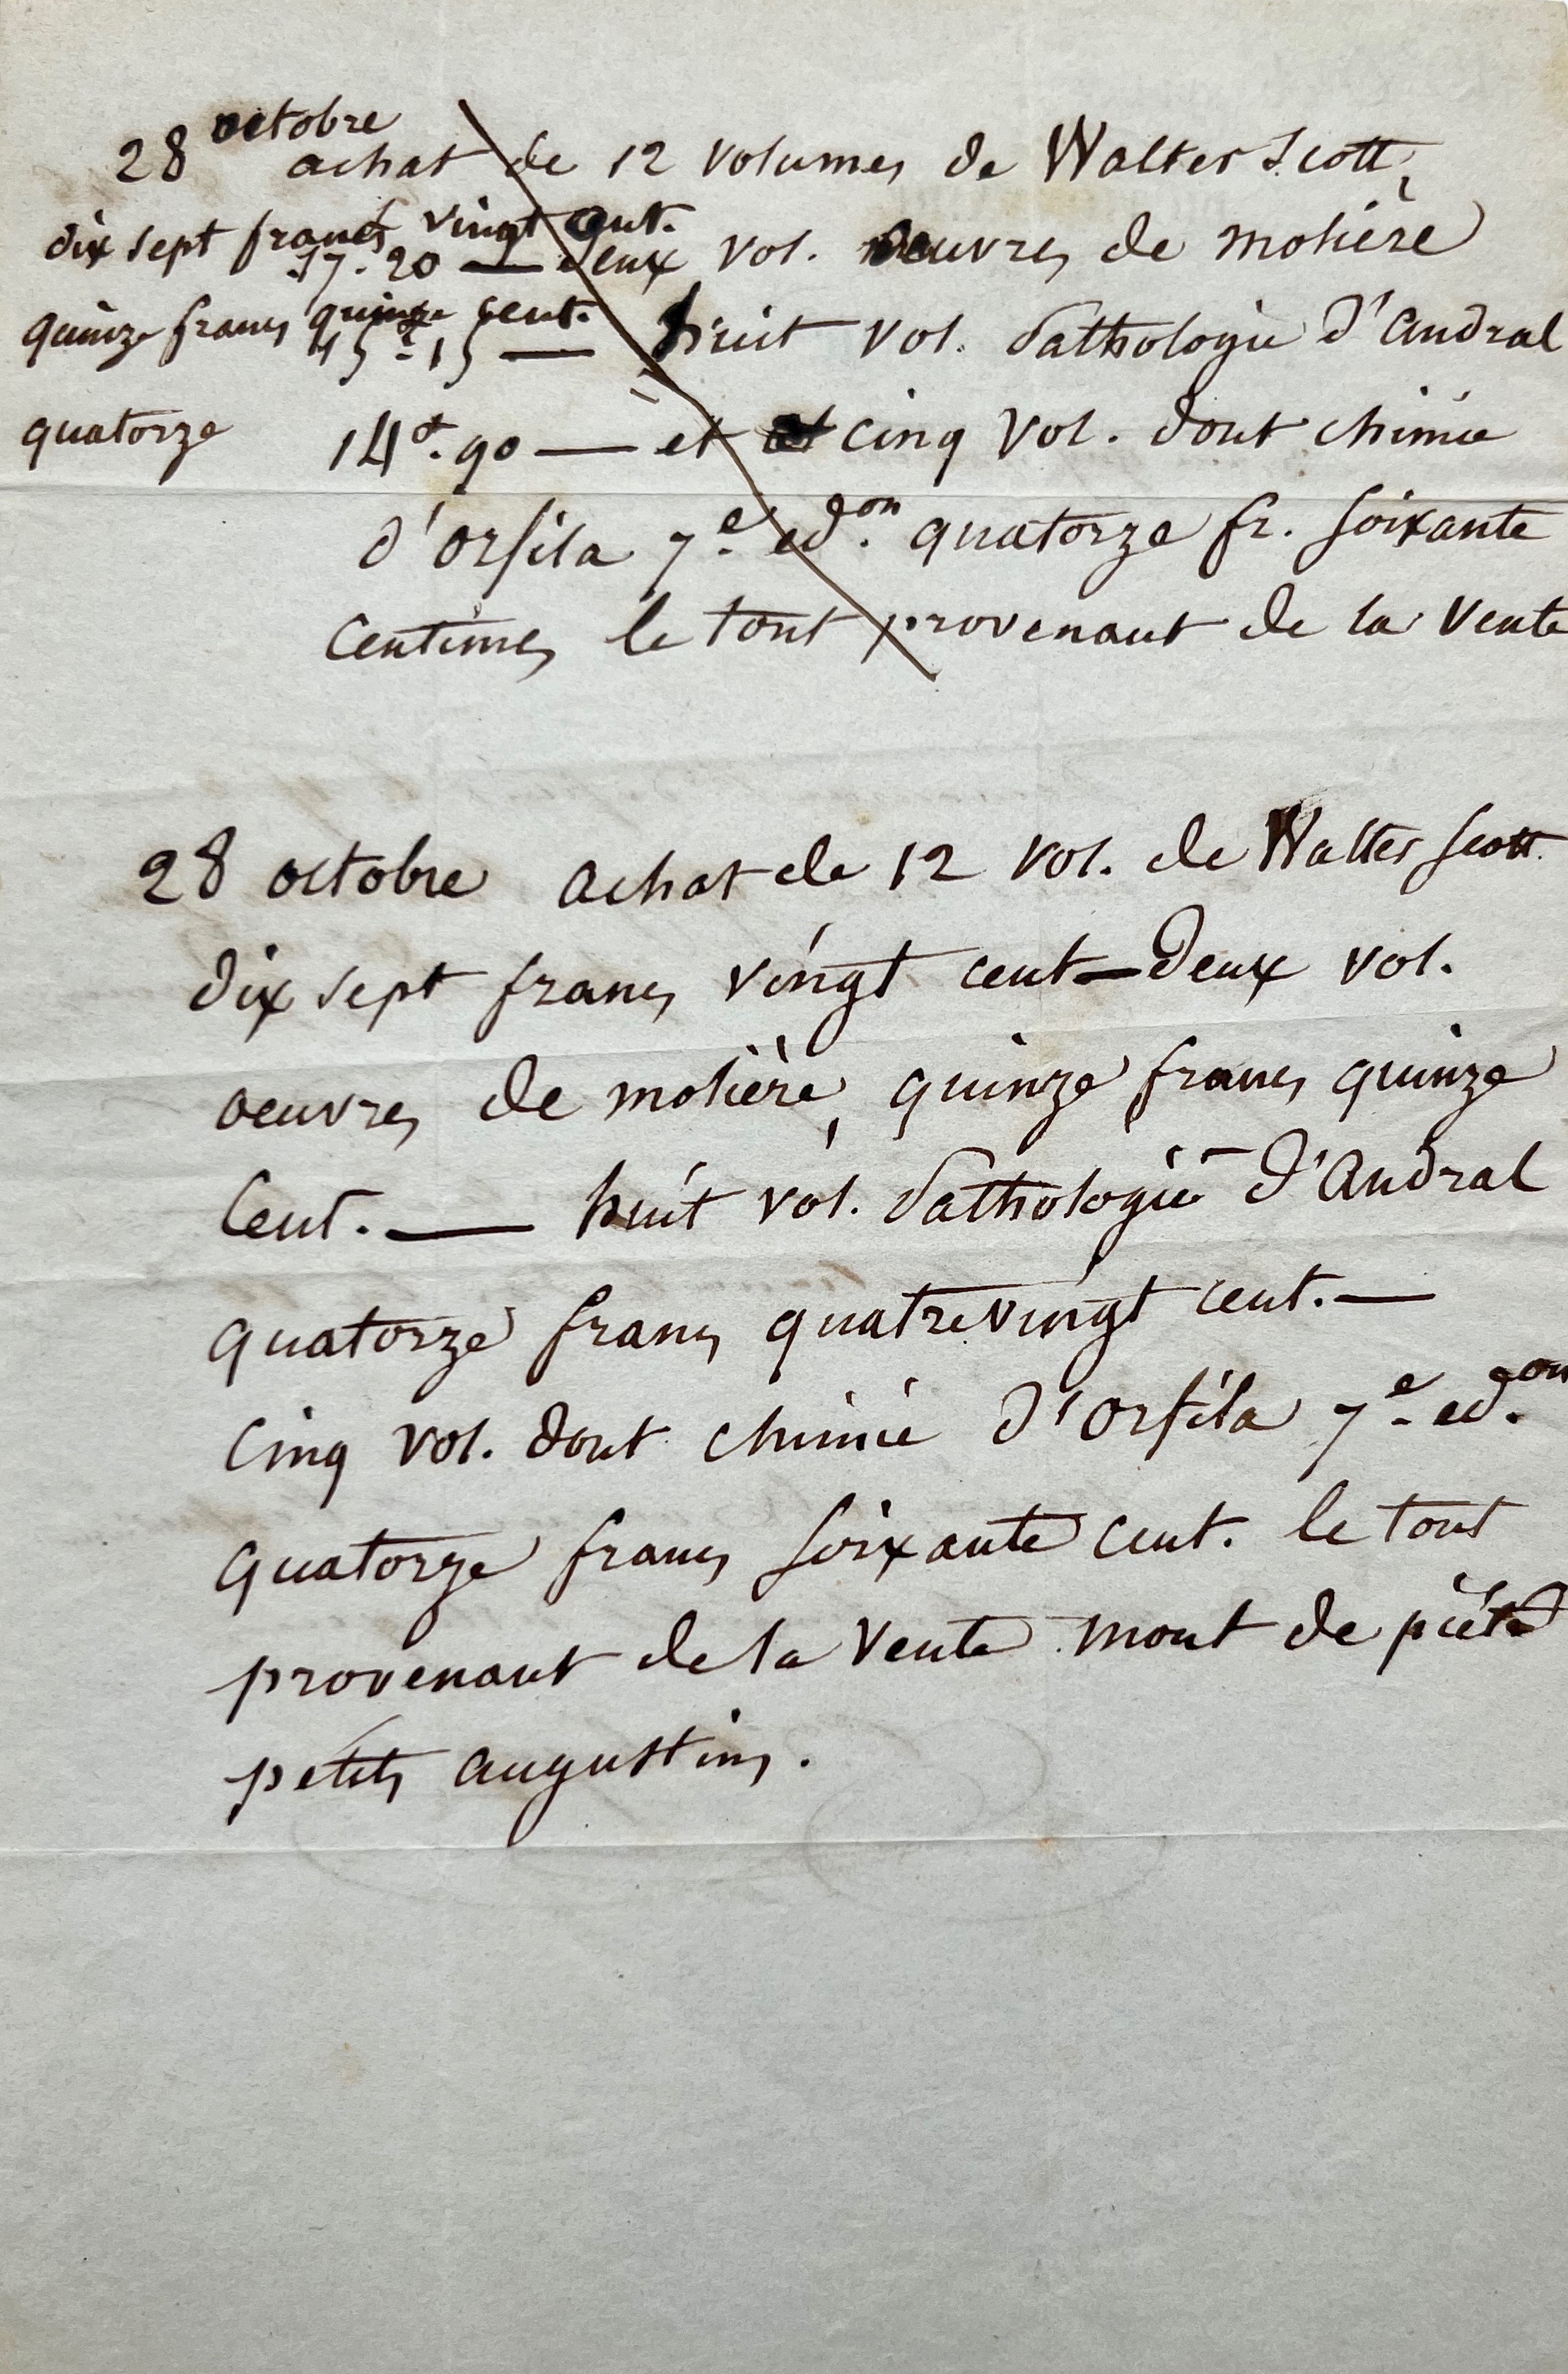 28 octobre achat de 12 volumes de Walter Scott,
dix sept francs vingt cent.
17. 20 — deux vol. oeuvres de molière
quinze francs quinze cent.
15 f 15 — huit vol. Pathologie d'Andral
quatorze 14 f. 90 — et cinq vol. dont chimie
d'Orfila 7e edon. quatorze fr. soixante
Centimes le tout provenant de la Vente
28 octobre achat de 12 vol. de Walter Scott
dix sept francs vingt cent — deux vol.
oeuvres de molière, quinze francs quinze
Cent. — huit vol. Pathologie d'Andral
quatorze francs quatrevingt cent. —
Cinq vol. dont chimie d'Orfila 7e edon.
quatorze francs soixante cent. le tout
provenant de la Vente mont de piété
petits augustins.